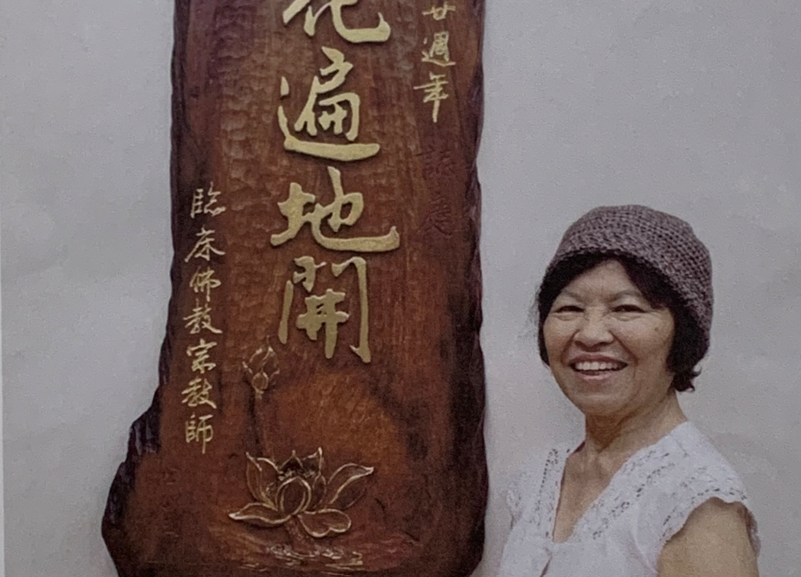 廿週年
花遍地開
臨床佛教宗教師